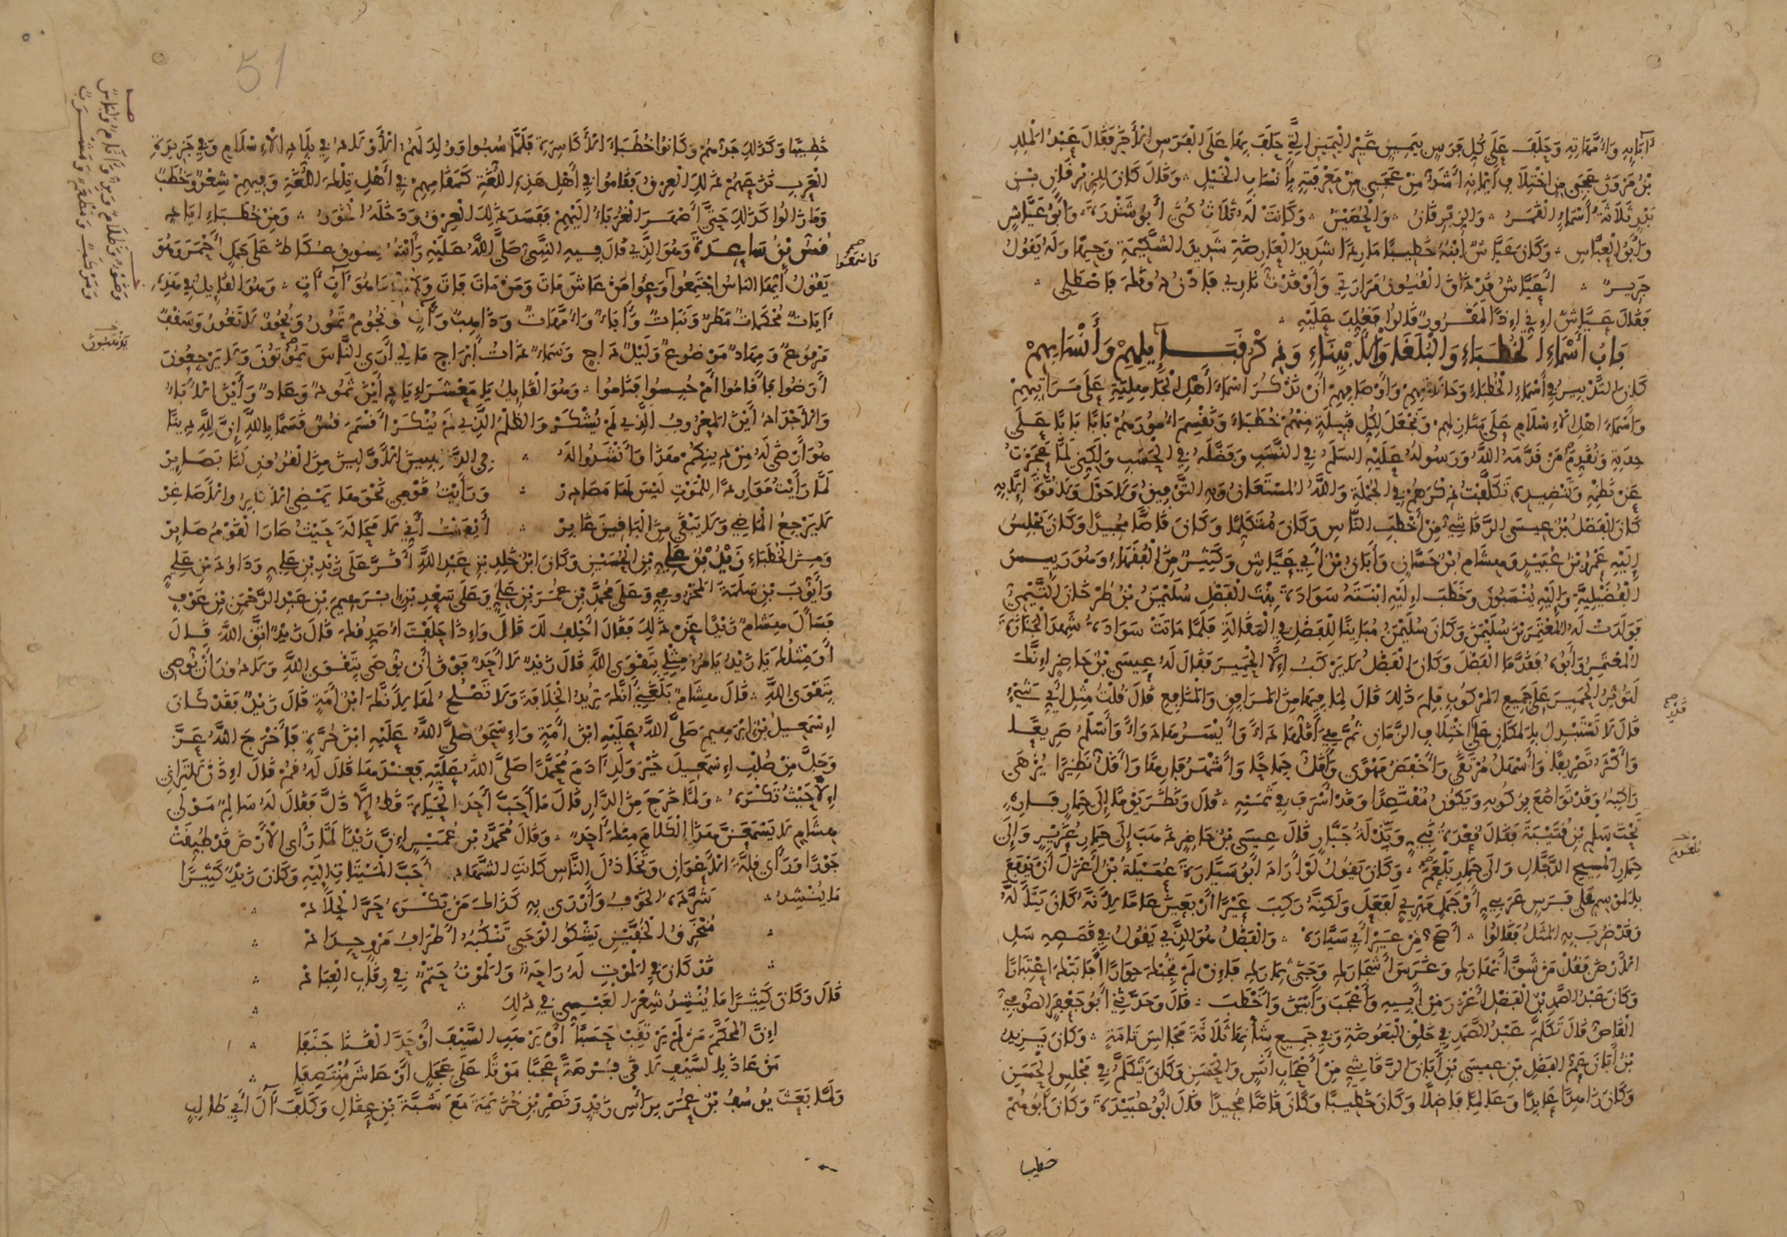 آبَائِهِ وَأُمَّهَاتِهِ وَحَلَفَ عَلَى كُلِّ فَرَسٍ بِيَمِينٍ غَيْرِ الْيَمِينِ الَّتِي حَلَفَ بِهَا عَلَى الْفَرَسِ الْأُخْرَى فَقَالَ عَبْدُ الْمَلِكِ
بْنُ مَرْوَانَ عَجَبِي مِنِ اخْتِلَافِ أَيْمَانِهِ أَشَدُّ مِنْ عَجَبِي مِنْ مَعْرِفَتِهِ بِأَنْسَابِ الْخَيْلِ وَقَالَ كَانَ لِلزِّبْرِقَانِ بْنِ
بَدْرٍ ثَلَاثَةُ أَسْمَاءٍ الْقَمَرُ وَالزِّبْرِقَانُ وَالْحُصَيْنُ وَكَانَتْ لَهُ ثَلَاثُ كُنًى أَبُو شَذْرَةَ وَأَبُو عَيَّاشٍ
وَأَبُو الْعَبَّاسِ وَكَانَ عَيَّاشٌ ابْنُهُ خَطِيبًا مَارِدًا شَدِيدَ الْعَارِضَةِ شَدِيدَ الشَّكِيمَةِ وَجِيهًا وَلَهُ يَقُولُ
جَرِيرٌ أَعَيَّاشُ قَدْ ذَاقَ الْقُيُونُ مَرَارَتِي وَأَوْقَدْتُ نَارِي فَادْنُ دُونَكَ فَاصْطَلِي
فَقَالَ عَيَّاشٌ إِنِّي إِذًا لَمَقْرُورٌ قَالُوا فَغُلِّبَ عَلَيْهِ
بَابُ أَسْمَاءِ الْخُطَبَاءِ وَالْبُلَغَاءِ وَالْأَبْيِنَاءِ وَذِكْرِ قَبَائِلِهِمْ وَأَنْسَابِهِمْ
كَانَ التَّدْبِيرُ فِي أَسْمَاءِ الْخُطَبَاءِ وَحَالَاتِهِمْ وَأَوْصَافِهِمْ أَنْ نَذْكُرَ أَسْمَاءَ أَهْلِ الْجَاهِلِيَّةِ عَلَى مَرَاتِبِهِمْ
وَأَسْمَاءَ أَهْلِ الْإِسْلَامِ عَلَى مَنَازِلِهِمْ وَنَجْعَلَ لِكُلِّ قَبِيلَةٍ مِنْهُمْ خُطَبَاءَ وَنَقْسِمَ أُمُورَهُمْ بَابًا بَابًا عَلَى
حِدَتِهِ وَنُقَدِّمَ مَنْ قَدَّمَهُ اللَّهُ وَرَسُولُهُ عَلَيْهِ السَّلَمُ فِي النَّسَبِ وَفَضَّلَهُ فِي الْحَسَبِ وَلَكِنِّي لَمَّا عَجَزْتُ
عَنْ نَظْمِهِ وَتَنْضِيدِهِ تَكَلَّفْتُ ذِكْرَهُمْ فِي الْجُمْلَةِ وَاللَّهُ الْمُسْتَعَانُ وَبِهِ التَّوْفِيقُ وَلَا حَوْلَ وَلَا قُوَّةَ إِلَّا بِهِ
كَانَ الْفَضْلُ بْنُ عِيسَى الرَّقَاشِيُّ مِنْ أَخْطَبِ النَّاسِ وَكَانَ مُتَكَلِّمًا وَكَانَ قَاصًّا مُجِيدًا وَكَانَ يَجْلِسُ
إِلَيْهِ عَمْرُو بْنُ عُبَيْدٍ وَهِشَامُ بْنُ حَسَّانٍ وَأَبَانُ بْنُ أَبِي عَيَّاشٍ وَكَثِيرٌ مِنَ الْفُقَهَاءِ وَهُوَ رَئِيسُ
الْفَضْلِيَّةِ وَإِلَيْهِ يُنْسَبُونَ وَخَطَبَ إِلَيْهِ ابْنَتَهُ سَوَادَةَ بِنْتَ الْفَضْلِ سُلَيْمَنُ بْنُ طَرْخَانَ التَّيْمِيُّ
فَوَلَدَتْ لَهُ الْمُعْتَمِرَ بْنَ سُلَيْمَنَ وَكَانَ سُلَيْمَنُ مُبَايِنًا لِلْفَضْلِ فِي الْمَقَالَةِ فَلَمَّا مَاتَتْ سَوَادَةُ شَهِدَ الْجَنَازَةَ
الْمُعْتَمِرُ وَأَبُوهُ فَقَدَّمَا الْفَضْلَ وَكَانَ الْفَضْلُ لَا يَرْكَبُ إِلَّا الْحَمِيرَ فَقَالَ لَهُ عِيسَى بْنُ حَاضِرٍ إِنَّكَ
لَتُؤْثِرُ الْحَمِيرَ عَلَى جَمِيعِ الْمَرْكُوبِ فَلِمَ ذَلِكَ قَالَ لِمَا فِيهَا مِنَ الْمَرَافِقِ وَالْمَنَافِعِ قَالَ قُلْتُ مِثْلُ أَيِّ شَيْءٍ
قَالَ لَا تَسْتَبْدِلُ بِالْمَكَانِ عَلَى اخْتِلَافِ الزَّمَانِ ثُمَّ هِيَ أَقَلُّهَا دَاءً وَأَيْسَرُهَا دَوَاءً وَأَسْلَمُ صَرِيعًا
وَأَكْثَرُ تَصْرِيفًا وَأَسْهَلُ مُرْتَقًى وَأَخْفَضُ مَهْوًى وَأَقَلُّ جِمَاحًا وَأَشْهَرُ فَارِهًا وَأَقَلُّ نَظِيرًا يُزْهَى
رَاكِبُهُ وَقَدْ تَوَاضَعَ بِرُكُوبِهِ وَيَكُونُ مُقْتَصِدًا وَقَدْ أَسْرَفَ فِي ثَمَنِهِ قَالَ وَنَظَرَ يَوْمًا إِلَى حِمَارٍ فَارِهٍ
تَحْتَ سَلْمِ بْنِ قُتَيْبَةَ فَقَالَ قِعْدَةُ نَبِيٍّ وَبِذْلَةُ جَبَّارٍ قَالَ عِيسَى بْنُ حَاضِرٍ ذَهَبَ إِلَى حِمَارِ عُزَيْرٍ وَإِلَى
حِمَارِ الْمَسِيحِ الدَّجَّالِ وَإِلَى حِمَارِ بَلْعَمَ وَكَانَ يَقُولُ لَوْ أَرَادَ أَبُو سَيَّارَةَ عُمَيْلَةُ بْنُ أَعْزَلَ أَنْ يَدْفَعَ
بِالْمَوْسِمِ عَلَى فَرَسٍ عَرَبِيٍّ أَوْ جَمَلٍ مَهْرِيٍّ لَفَعَلَ وَلَكِنَّهُ رَكِبَ عَيْرًا أَرْبَعِينَ عَامًا لِأَنَّهُ كَانَ يَتَأَلَّهُ
وَقَدْ ضُرِبَ بِهِ الْمَثَلُ فَقَالُوا أَصَحُّ مِنْ عَيْرِ أَبِي سَيَّارَةَ وَالْفَضْلُ هُوَ الَّذِي يَقُولُ فِي قَصَصِهِ سَلِ
الْأَرْضَ فَقُلْ مَنْ شَقَّ أَنْهَارَكِ وَغَرَسَ أَشْجَارَكِ وَجَنَى ثِمَارَكِ فَإِنْ لَمْ تُجِبْكَ حِوَارًا أَجَابَتْكَ اعْتِبَارًا
وَكَانَ عَبْدُ الصَّمَدِ بْنُ الْفَضْلِ أَغْزَرَ مِنْ أَبِيهِ وَأَعْجَبَ وَأَبْيَنَ وَأَخْطَبَ قَالَ وَحَدَّثَنِي أَبُو جَعْفَرٍ الصُّوفِيُّ
الْقَاصُّ قَالَ تَكَلَّمَ عَبْدُ الصَّمَدِ فِي خَلْقِ الْبَعُوضَةِ وَفِي جَمِيعِ شَأْنِهَا ثَلَاثَةَ مَجَالِسَ تَامَّةٍ وَكَانَ يَزِيدُ
بْنُ أَبَانَ عَمُّ الْفَضْلِ بْنِ عِيسَى بْنِ أَبَانَ الرَّقَاشِيُّ مِنْ أَصْحَابِ أَنَسٍ وَالْحَسَنِ وَكَانَ يَتَكَلَّمُ فِي مَجْلِسِ الْحَسَنِ
وَكَانَ زَاهِدًا عَابِدًا وَعَالِمًا فَاضِلًا وَكَانَ خَطِيبًا وَكَانَ قَاصًّا مُجِيدًا قَالَ أَبُو عُبَيْدَةَ وَكَانَ أَبُوهُمْ
خطيبا
51
خَطِيبًا وَكَذَلِكَ جَدُّهُمْ وَكَانُوا خُطَبَاءَ الْأَكَاسِرَةِ فَلَمَّا سُبُوا وَوُلِدَ لَهُمُ الْأَوْلَادُ فِي بِلَادِ الْإِسْلَامِ وَفِي جَزِيرَةِ
الْعَرَبِ نَزَعَهُمْ ذَلِكَ الْعِرْقُ فَقَامُوا فِي أَهْلِ هَذِهِ اللُّغَةِ كَمَقَامِهِمْ فِي أَهْلِ تِلْكَ اللُّغَةِ وَفِيهِمْ شِعْرٌ وَخُطَبٌ
وَمَا زَالُوا كَذَلِكَ حَتَّى أَصْهَرَ الْغُرَبَاءُ إِلَيْهِمْ فَفَسَدَ ذَلِكَ الْعِرْقُ وَدَخَلَهُ الْخَوَرُ وَمِنْ خُطَبَاءِ إِيَادٍ
قُسُّ بْنُ سَاعِدَةَ وَهُوَ الَّذِي قَالَ فِيهِ النَّبِيُّ صَلَّى اللَّهُ عَلَيْهِ رَأَيْتُهُ بِسُوقِ عُكَاظَ عَلَى جَمَلٍ أَحْمَرَ وَهُوَ
فَاسْمَعُوا صح
يَقُولُ أَيُّهَا النَّاسُ اجْتَمِعُوا وَعُوا مَنْ عَاشَ مَاتَ وَمَنْ مَاتَ فَاتَ وَكُلُّ مَا هُوَ آتٍ آتٍ وَهُوَ الْقَائِلُ فِي هَذِهِ
آيَاتٌ مُحْكَمَاتٌ مَطَرٌ وَنَبَاتٌ وَآبَاءٌ وَأُمَّهَاتٌ وَذَاهِبٌ وَآتٍ وَنُجُومٌ تَمُورُ وَبُحُورٌ لَا تَغُورُ وَسَقْفٌ
مَرْفُوعٌ وَمِهَادٌ مَوْضُوعٌ وَلَيْلٌ دَاجٍ وَسَمَاءٌ ذَاتُ أَبْرَاجٍ مَا لِي أَرَى النَّاسَ يَمُوتُونَ وَلَا يَرْجِعُونَ
أَرَضُوا فَأَقَامُوا أَمْ حُبِسُوا فَنَامُوا وَهُوَ الْقَائِلُ يَا مَعْشَرَ إِيَادٍ أَيْنَ ثَمُودُ وَعَادٌ وَأَيْنَ الْآبَاءُ
وَالْأَجْدَادُ أَيْنَ الْمَعْرُوفُ الَّذِي لَمْ يُشْكَرْ وَالظُّلْمُ الَّذِي لَمْ يُنْكَرْ أَقْسَمَ قُسٌّ قَسَمًا بِاللَّهِ إِنَّ لِلَّهِ دِينًا
هُوَ أَرْضَى لَهُ مِنْ دِينِكُمْ هَذَا وَأَنْشَدُوا لَهُ فِي الذَّاهِبِينَ الْأَوَّلِينَ مِنَ الْقُرُونِ لَنَا بَصَائِرْ
لَمَّا رَأَيْتُ مَوَارِدًا لِلْمَوْتِ لَيْسَ لَهَا مَصَادِرْ وَرَأَيْتُ قَوْمِي نَحْوَهَا يَمْضِي الْأَكَابِرُ وَالْأَصَاغِرْ
لَا يَرْجِعُ الْمَاضِي وَلَا يَبْقَى مِنَ الْبَاقِينَ غَابِرْ أَيْقَنْتُ أَنِّي لَا مَحَالَةَ حَيْثُ صَارَ الْقَوْمُ صَائِرْ
وَمِنَ الْخُطَبَاءِ زَيْدُ بْنُ عَلِيِّ بْنِ الْحُسَيْنِ وَكَانَ ابْنُ خَالِدِ بْنِ عَبْدِ اللَّهِ أَقَرَّ عَلَى زَيْدِ بْنِ عَلِيٍّ وَدَاوُدَ بْنِ عَلِيٍّ
وَأَيُّوبَ بْنِ سَلَمَةَ الْمَخْزُومِيِّ وَعَلَى مُحَمَّدِ بْنِ عُمَرَ بْنِ عَلِيٍّ وَعَلَى سَعِيدِ بْنِ إِبْرَهِيمَ بْنِ عَبْدِ الرَّحْمَنِ بْنِ عَوْفٍ
فَسَأَلَ هِشَامٌ زَيْدًا عَنْ ذَلِكَ فَقَالَ أَحْلِفُ لَكَ قَالَ وَإِذَا حَلَفْتَ أُصَدِّقُكَ قَالَ زَيْدٌ اتَّقِ اللَّهَ قَالَ
أَوَمِثْلُكَ يَا زَيْدُ يَأْمُرُ مِثْلِي بِتَقْوَى اللَّهِ قَالَ زَيْدٌ لَا أَحَدَ فَوْقَ أَنْ يُوصَى بِتَقْوَى اللَّهِ وَلَا دُونَ أَنْ يُوصِيَ
بِتَقْوَى اللَّهِ قَالَ هِشَامٌ بَلَغَنِي أَنَّكَ تُرِيدُ الْخِلَافَةَ وَلَا تَصْلُحُ لَهَا لِأَنَّكَ ابْنُ أَمَةٍ قَالَ زَيْدٌ فَقَدْ كَانَ
إِسْمَعِيلُ بْنُ إِبْرَهِيمَ صَلَّى اللَّهُ عَلَيْهِ ابْنَ أَمَةٍ وَإِسْحَقُ صَلَّى اللَّهُ عَلَيْهِ ابْنَ حُرَّةٍ فَأَخْرَجَ اللَّهُ عَزَّ
وَجَلَّ مِنْ صُلْبِ إِسْمَعِيلَ خَيْرَ وَلَدِ آدَمَ مُحَمَّدًا صَلَّى اللَّهُ عَلَيْهِ فَعِنْدَهَا قَالَ لَهُ قُمْ قَالَ إِذًا لَا تَرَانِي
إِلَّا حَيْثُ تَكْرَهُ وَلَمَّا خَرَجَ مِنَ الدَّارِ قَالَ مَا أَحَبَّ أَحَدٌ الْحَيَاةَ قَطُّ إِلَّا ذَلَّ فَقَالَ لَهُ سَالِمٌ مَوْلَى
هِشَامٍ لَا يَسْمَعَنَّ هَذَا الْكَلَامَ مِنْكَ أَحَدٌ وَقَالَ مُحَمَّدُ بْنُ عُمَيْرٍ إِنَّ زَيْدًا لَمَّا رَأَى الْأَرْضَ قَدْ طُبِّقَتْ
جَوْرًا وَرَأَى قِلَّةَ الْأَعْوَانِ وَتَخَاذُلَ النَّاسِ كَانَتِ الشَّهَادَةُ أَحَبَّ الْمِيتَاتِ إِلَيْهِ وَكَانَ زَيْدٌ كَثِيرًا
مَا يُنْشِدُ شَرَّدَهُ الْخَوْفُ وَأَزْرَى بِهِ كَذَاكَ مَنْ يَكْرَهُ حَرَّ الْجِلَادْ
مُنْخَرِقُ الْخُفَّيْنِ يَشْكُو الْوَجَى تَنْكُبُهُ أَطْرَافُ مَرْوٍ حِدَادْ
قَدْ كَانَ فِي الْمَوْتِ لَهُ رَاحَةٌ وَالْمَوْتُ حَتْمٌ فِي رِقَابِ الْعِبَادْ
قَالَ وَكَانَ كَثِيرًا مَا يُنْشِدُ شِعْرَ الْعَبْسِيِّ فِي ذَلِكَ
إِنَّ الْمُحَكَّمَ مَا لَمْ يَرْتَقِبْ حَسَبًا أَوْ يَرْهَبِ السَّيْفَ أَوْ حَدَّ الْقَنَا جَنَفَا
مَنْ عَاذَ بِالسَّيْفِ لَاقَى فُرْصَةً عَجَبًا مَوْتًا عَلَى عَجَلٍ أَوْ عَاشَ مُنْتَصِفَا
وَلَمَّا بَعَثَ يُوسُفُ بْنُ عُمَرَ بِرَأْسِ زَيْدٍ وَنَصْرِ بْنِ خُزَيْمَةَ مَعَ شَبَّةَ بْنِ عِقَالٍ وَكَلَّفَ آلَ أَبِي طَالِبٍ